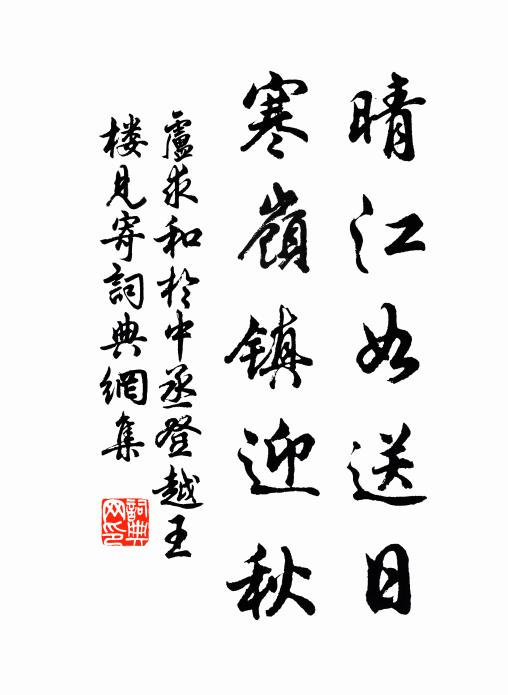 晴江如送日
寒嶺鎮迎秋
盧求和於中丞登越王
楼見寄詞典網集
詞典
网印